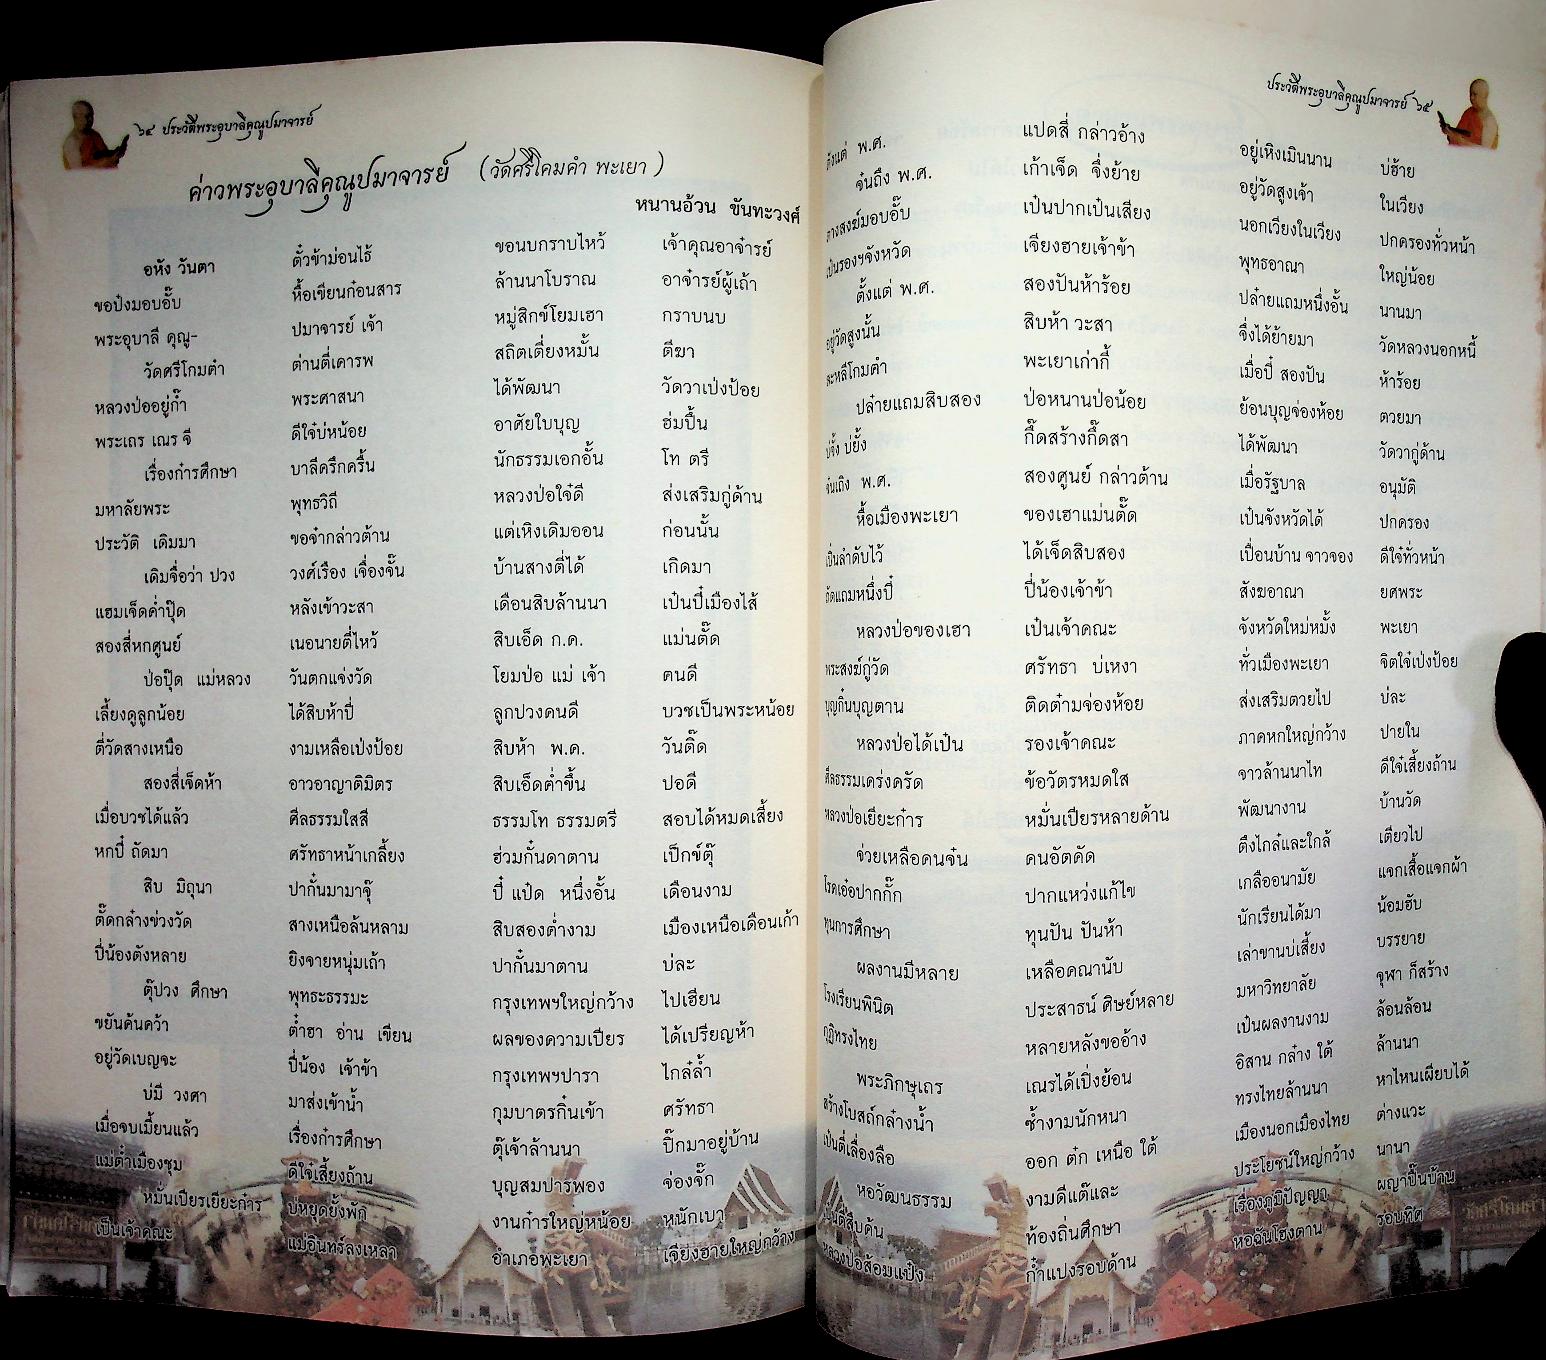 ๖๔ ประวัติพระอุบาลีคุณูปมาจารย์
ค่าวพระอุบาลีคุณูปมาจารย์ (วัดศรีโคมคำ พะเยา)
หนานอ้วน ขันทะวงศ์
อหัง วันตา ตั๋วข้าม่อนไธ้ ขอนบกราบไหว้ เจ้าคุณอาจ๋ารย์
ขอป๋งมอบอั๊บ หื้อเขียนก๋อนสาร ล้านนาโบราณ อาจ๋ารย์ผู้เถ้า
พระอุบาลี คุณู- ปมาจารย์ เจ้า หมู่สิกข์โยมเฮา กราบนบ
วัดศรีโกมคำ ต่านตี่เคารพ สถิตเตี่ยงหมั้น ตีฆา
หลวงป่ออยู่ก๊ำ พระศาสนา ได้พัฒนา วัดวาเป่งป้อย
พระเถร เณร จี ดีใจ๋บ่หน้อย อาศัยใบบุญ ฮ่มปื้น
เรื่องก๋ารศึกษา บาลีครึกครื้น นักธรรมเอกอั้น โท ตรี
มหาลัยพระ พุทธวิถี หลวงป่อใจ๋ดี ส่งเสริมกู่ด้าน
ประวัติ เดิมมา ขอจ๋ากล่าวต้าน แต่เหิงเดิมออน ก่อนนั้น
เดิมจื่อว่า ปวง วงศ์เรือง เจื่องจั๊น บ้านสางตี่ได้ เกิดมา
แฮมเจ็ดค่ำปุ๊ด หลังเข้าวะสา เดือนสิบล้านนา เป๋นปี๋เมืองไส้
สองสี่หกศูนย์ เนอนายตี่ไหว้ สิบเอ็ด ก.ค. แม่นตั๊ด
ป่อปุ๊ด แม่หลวง วันตกแจ่งวัด โยมป่อ แม่ เจ้า คนดี
เลี้ยงดูลูกน้อย ได้สิบห้าปี๋ ลูกปวงคนดี บวชเป็นพระหน้อย
ตี่วัดสางเหนือ งามเหลือเป่งป้อย สิบห้า พ.ค. วันติ๊ด
สองสี่เจ็ดห้า อาวอาญาติมิตร สิบเอ็ดค่ำขึ้น ปอดี
เมื่อบวชได้แล้ว ศีลธรรมใสสี ธรรมโท ธรรมตรี สอบได้หมดเสี้ยง
หกปี๋ ถัดมา ศรัทธาหน้าเกลี้ยง ฮ่วมกั๋นดาตาน เป็กข์ตุ๊
สิบ มิถุนา ปากั๋นมามาจุ๊ ปี๋ แป๋ด หนึ่งอั้น เดือนงาม
ตั๊ดกล๋างข่วงวัด สางเหนือล้นหลาม สิบสองต่ำงาม เมืองเหนือเดือนเก้า
ปี่น้องตังหลาย ยิงจายหนุ่มเถ้า ปากั๋นมาตาน บ่ละ
ตุ๊ปวง ศึกษา พุทธะธรรมะ กรุงเทพฯใหญ่กว้าง ไปเฮียน
ขยันค้นคว้า ต๋ำฮา อ่าน เขียน ผลของความเปียร ได้เปรียญห้า
อยู่วัดเบญจะ ปี่น้อง เจ้าข้า กรุงเทพฯปารา ไกล๋ล้ำ
บ่มี วงศา มาส่งเข้าน้ำ กุมบาตรกิ๋นเข้า ศรัทธา
เมื่อจบเมี้ยนแล้ว เรื่องก๋ารศึกษา ตุ๊เจ้าล้านนา ปิ๊กมาอยู่บ้าน
แม่ต๋ำเมืองชุม ดีใจ๋เสี้ยงถ้าน บุญสมปารพอง จ่องจั๊ก
หมั่นเปียรเยียะก๋าร บ่หยุดยั้งพัก งานก๋ารใหญ่หน้อย หนักเบา
เป็นเจ้าคณะ แม่อินทร์ลงเหลา อำเภอพะเยา เจียงฮายใหญ่กว้าง
ประวัติพระอุบาลีคุณูปมาจารย์ ๖๕
ตั้งแต่ พ.ศ. แปดสี่ กล่าวอ้าง อยู่เหิงเมินนาน บ่ฮ้าย
จ๋นถึง พ.ศ. เก้าเจ็ด จึ่งย้าย อยู่วัดสูงเจ้า ในเวียง
ทางสงฆ์มอบอั๊บ เป๋นปากเป๋นเสียง นอกเวียงในเวียง ปกครองทั่วหน้า
เป๋นรองฯจังหวัด เจียงฮายเจ้าข้า พุทธอาณา ใหญ่น้อย
ตั้งแต่ พ.ศ. สองปันห้าร้อย ปล๋ายแถมหนึ่งอั้น นานมา
อยู่วัดสูงนั้น สิบห้า วะสา จึ่งได้ย้ายมา วัดหลวงนอกหนี้
สะหลีโกมคำ พะเยาเก่ากี้ เมื่อปี๋ สองปัน ห้าร้อย
ปล๋ายแถมสิบสอง ป่อหนานป่อน้อย ย้อนบุญจ่องห้อย ตวยมา
บ่จั้ง บ่ยั้ง กึ๊ดสร้างกึ๊ดสา ได้พัฒนา วัดวากู่ด้าน
จ๋นเถิง พ.ศ. สองศูนย์ กล่าวต้าน เมื่อรัฐบาล อนุมัติ
หื้อเมืองพะเยา ของเฮาแม่นตั๊ด เป๋นจังหวัดได้ ปกครอง
เป๋นลำดับไว้ ได้เจ็ดสิบสอง เปื่อนบ้าน จาวจอง ดีใจ๋ทั่วหน้า
ถัดแถมหนึ่งปี๋ ปี่น้องเจ้าข้า สังฆอาณา ยศพระ
หลวงป่อของเฮา เป๋นเจ้าคณะ จังหวัดใหม่หมั้ง พะเยา
พระสงฆ์กู่วัด ศรัทธา บ่เหงา ทั่วเมืองพะเยา จิตใจ๋เป่งป้อย
บุญกิ๋นบุญตาน ติดต๋ามจ่องห้อย ส่งเสริมตวยไป บ่ละ
หลวงป่อได้เป๋น รองเจ้าคณะ ภาคหกใหญ่กว้าง ปายใน
ศีลธรรมเคร่งครัด ข้อวัตรหมดใส จาวล้านนาไท ดีใจ๋เสี้ยงถ้าน
หลวงป่อเยียะก๋าร หมั่นเปียรหลายด้าน พัฒนางาน บ้านวัด
จ่วยเหลือคนจ๋น คนอัตคัด ตึงไกล๋และใกล้ เตียวไป
โรคเอ๋อปากกั๊ก ปากแหว่งแก้ไข เกลืออนามัย แจกเสื้อแจกผ้า
ทุนการศึกษา ทุนปัน ปันห้า นักเรียนได้มา น้อมฮับ
ผลงานมีหลาย เหลือคณานับ เล่าขานบ่เสี้ยง บรรยาย
โรงเรียนพินิต ประสาธน์ ศิษย์หลาย มหาวิทยาลัย จุฬา ก็สร้าง
กุฏิทรงไทย หลายหลังขออ้าง เป๋นผลงานงาม ล้อนล้อน
พระภิกษุเถร เณรได้เปิ่งย้อน อิสาน กล๋าง ใต้ ล้านนา
สร้างโบสถ์กล๋างน้ำ ซ้ำงามนักหนา ทรงไทยล้านนา หาไหนเผียบได้
เป๋นตี่เลื่องลือ ออก ต๋ก เหนือ ใต้ เมืองนอกเมืองไทย ต่างแวะ
หอวัฒนธรรม งามดีแต๊และ ประโยชน์ใหญ่กว้าง นานา
เป๋นตี่สืบค้น ท้องถิ่นศึกษา เรื่องภูมิปัญญา ผญาปื๊นบ้าน
หลวงป่อส้อมแป๋ง ก๋ำแปงรอบด้าน หอฉันโฮงตาน รอบทิศ